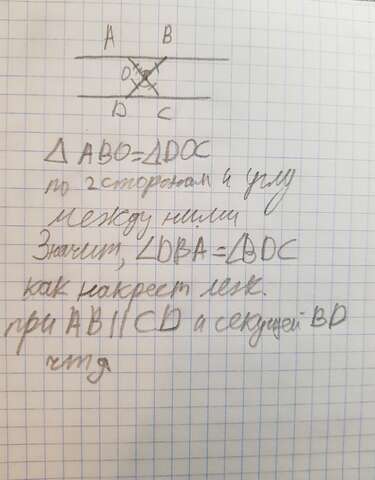 A B
O
D C
△ ABO=△DOC
по 2 сторонам и углу
между ними
Значит, ∠DBA=∠BDC
как накрест леж.
при AB||CD и секущей BD
чтд